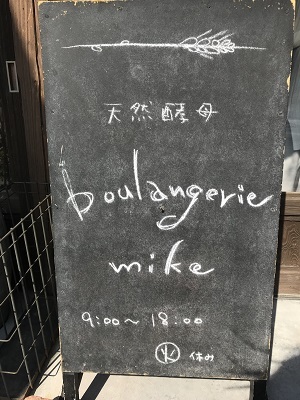 天然酵母
boulangerie
mike
9:00〜18:00
㊋ 休み